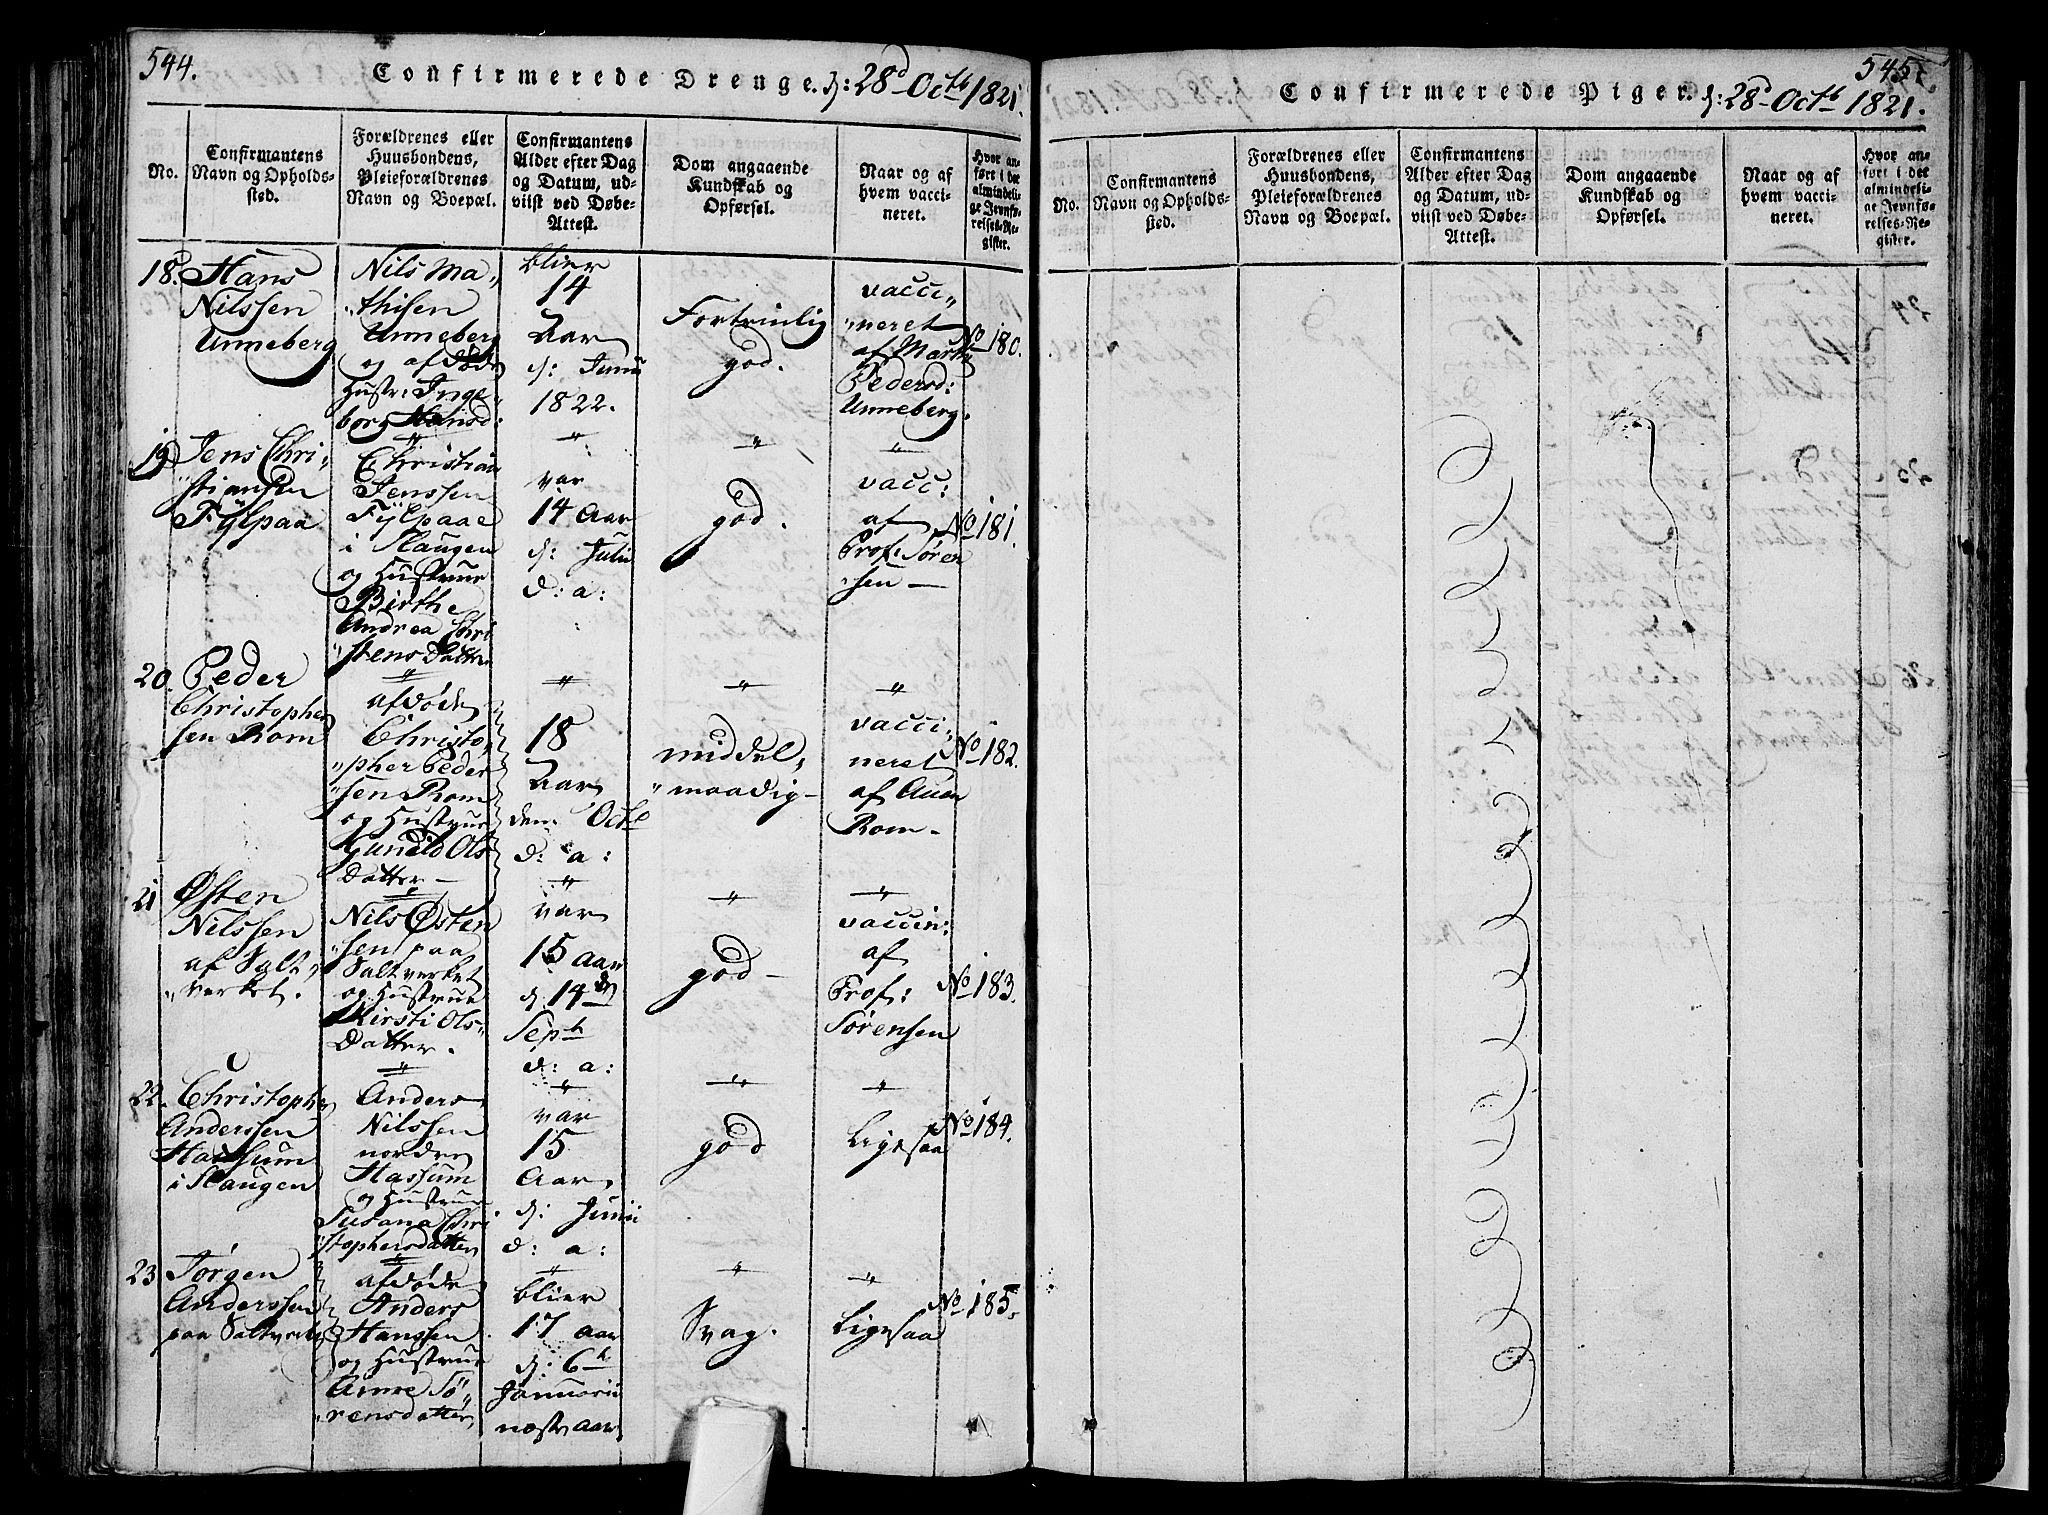 544.
Confirmerede Drenge. d: 28d Octb 1821.
No.
Confirmantens
Navn og Opholds-
sted.
Forældrenes eller
Huusbondens,
Pleieforældrenes
Navn og Boepæl.
Confirmantens
Alder efter Dag
og Datum, ud-
viist ved Døbe-
Attest.
Dom angaaende
Kundskab og
Opførsel.
Naar og af
hvem vacci-
neret.
Hvor an-
ført i det
almindeli-
ge Jevnfø-
relses-Re-
gister.
18.
Hans
Nilssen
Unneberg
Nils Ma-
"thisen
Unneberg
og afdøde
Hustr: Inge-
borg Hansd:
blier
14
Aar
d: Junii
1822.
Fortrinlig
god.
vacci"
"neret
af
Pedersd:
Unneberg.
No 180.
19
Jens Chri-
"stiansen
Fylpaa
Christian
Jenssen
Fylpaae
i Slaugen
og Hustrue
Birthe
Andrea Chri
"stensDatter
var
14 Aar
d: Julii
d: a:
god.
vacc:
af
Prof: Søren
"sen —
No 181.
20.
Peder
Christopher
sen Rom
afdøde
Christo,
"pher Peder
"sen Rom
og Hustrue
Gunild Ols
Datter —
18
Aar
den Octb
d: a:
middel,
"maadig —
vacci,
neret
af Auen
Rom —
No 182.
21
Østen
Nilssen
af Salt,
"verket.
Nils Østen
"sen paa
Saltverket
og Hustrue
Kirsti Ols"
Datter.
var
15 Aar
d. 14
Septb
d: a:
god —
vaccin:
af
Prof:
Sørensen
No 183.
22.
Christopher
Anderssen
Hassum
i Slaugen
Anders
Nilssen
nordre
Hassum
og Hustrue
Susana Chri
"stophersdatter
var
15
Aar
d: Junii
d: a:
god
Ligesaa
No 184.
23
Jørgen
Anderssen
paa Saltverk
afdøde
Anders
Hanssen
og Hustrue
Anne Sø"
"rensdatter
blier
17 aar
d: 6h
Januarii
næste aar
Svag.
Ligesaa
No 185.
545.
Confirmerede Piger. d: 28d Octb 1821.
No.
Confirmantens
Navn og Opholds-
sted.
Forældrenes eller
Huusbondens,
Pleieforældrenes
Navn og Boepæl.
Confirmantens
Alder efter Dag
og Datum, ud-
viist ved Døbe-
Attest.
Dom angaaende
Kundskab og
Opførsel.
Naar og af
hvem vacci-
neret.
Hvor an-
ført i det
almindeli-
ge Jevnfø-
relses-Re-
gister.